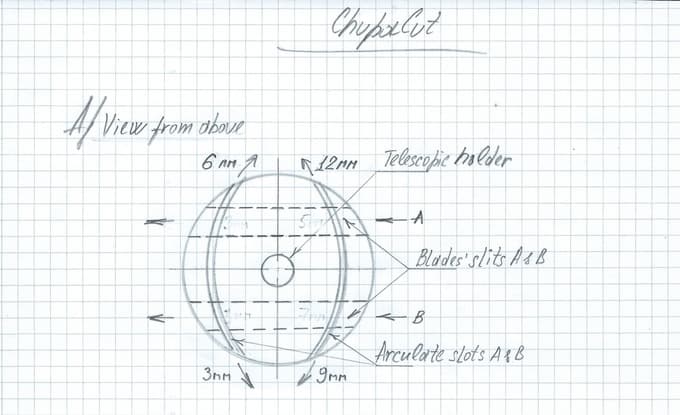 ChupaCut
A/ View from above
6mm
12mm
Telescopic holder
5mm
A
Blades' slits A&B
B
7mm
Arculate slots A&B
3mm
9mm